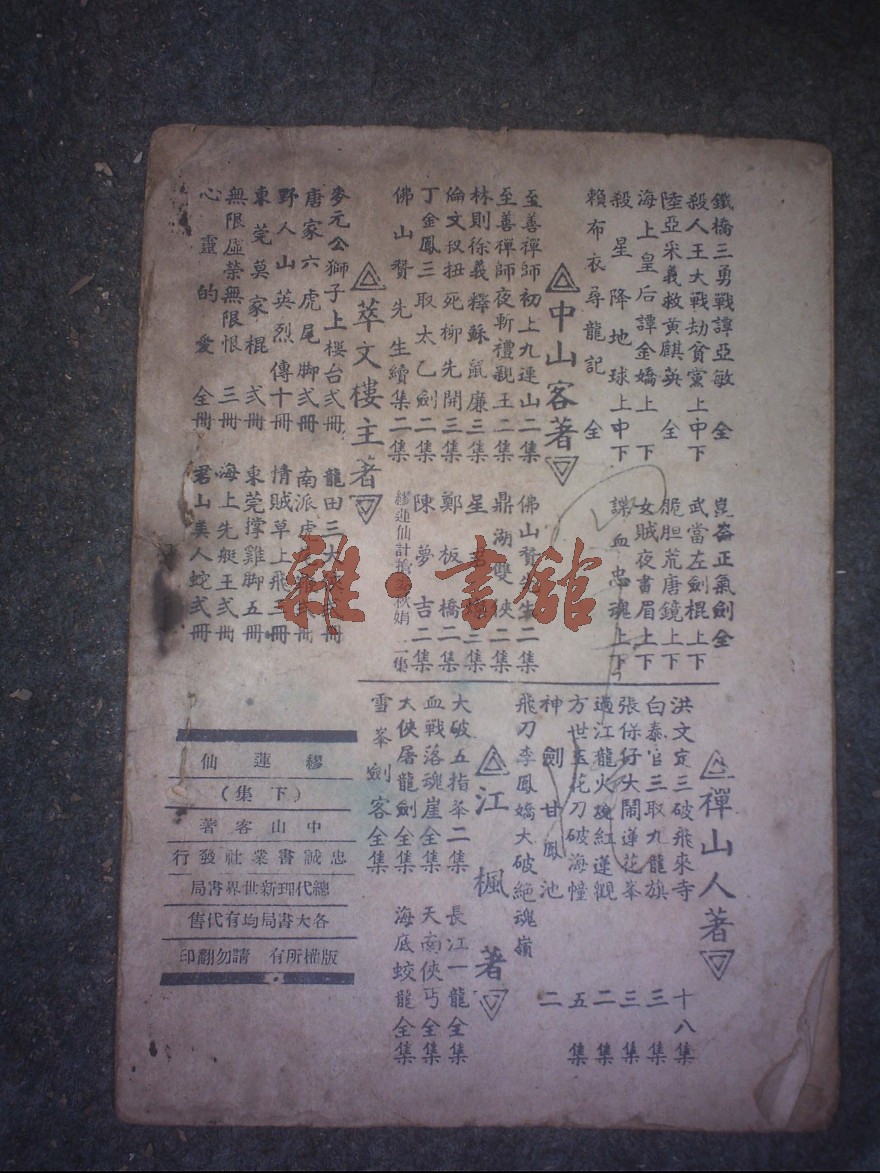 鐵橋三勇戰譚亞敏 全
殺人王大戰劫貧黨上中下
陸亞采義救黃麒英 全
海上皇后譚金嬌上下
殺星降地球上中下
賴布衣尋龍記 全
崑崙正氣劍全
武當左劍棍上下
脆胆荒唐鏡上下
女賊夜畫眉上下
諜血忠魂上下
中山客著
至善禪師初上九連山二集
至善禪師夜斬禮親王二集
林則徐義釋蘇鼠廉三集
倫文叙扭死柳先開三集
丁金鳳三取太乙劍二集
佛山贊先生續集二集
佛山贊先生二集
鼎湖雙俠二集
星三集
鄭板橋二集
陳夢吉二集
繆蓮仙計搶麥秋娟 二集
萃文樓主著
麥元公獅子上樓台弍冊
唐家六虎尾脚弍冊
野人山英烈傳十冊
東莞莫家棍 弍冊
無限虛榮無限恨 三冊
心靈的愛 全冊
龍田三大弍冊
南派虎弍冊
情賊草上飛三冊
東莞撑雞脚五冊
海上先艇王弍冊
君山美人蛇弍冊
禪山人著
洪文定三破飛來寺 十八集
白泰官三取九龍旗 三集
張保仔大鬧蓮花峯 三集
過江龍火燒紅蓮觀 二集
方世玉花刀破海幢 五集
神劍甘鳳池 二
飛刀李鳳嬌大破絕魂嶺
江楓著
大破五指峯二集
血戰落魂崖全集
大俠屠龍劍全集
雪峯劍客全集
長江一龍全集
天南俠丐全集
海底蛟龍全集
繆蓮仙
(下集)
中山客著
忠誠書業社發行
總代理新世界書局
各大書局均有代售
版權所有 請勿翻印
雜·書館